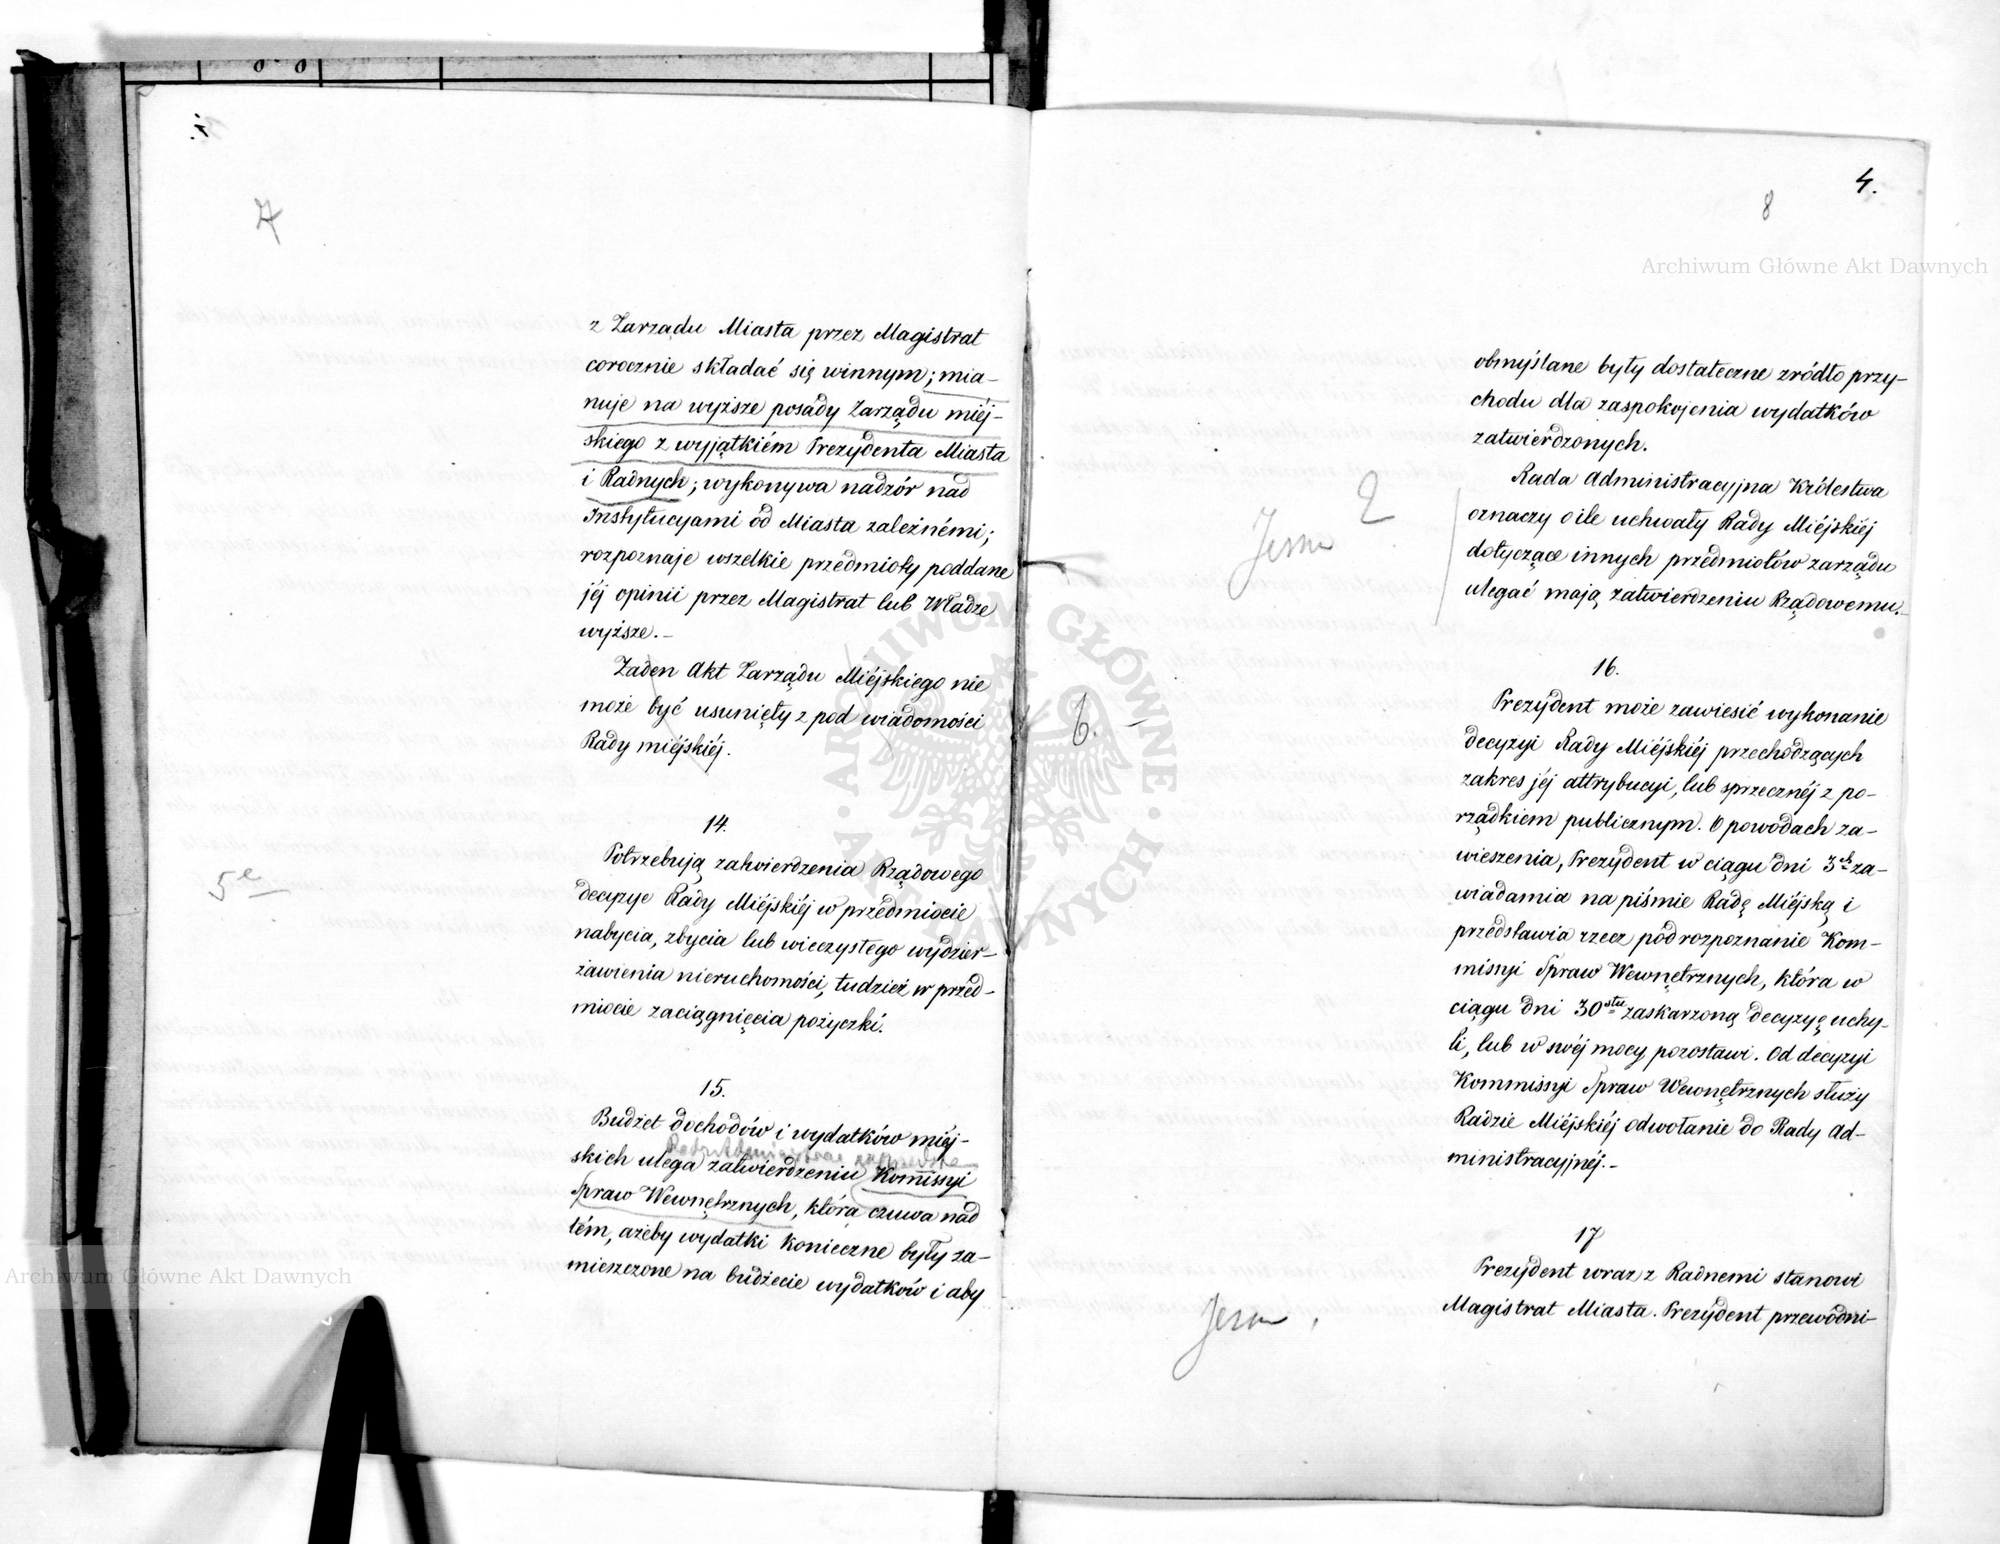 7
z Zarządu Miasta przez Magistrat
corocznie składać się winnym; mia-
nuje na wyższe posady Zarządu miéj-
skiego z wyjątkiém Prezydenta Miasta
i Radnych; wykonywa nadzór nad
Instytucyami od Miasta zależnémi;
rozpoznaje wszelkie przedmioty poddane
jéj opinii przez Magistrat lub Władze
wyższe.-
Żaden Akt Zarządu Miéjskiego nie
może być usunięty z pod wiadomości
Rady miéjskiéj.
14.
5e
Potrzebują zatwierdzenia Rządowego
decyzye Rady Miéjskiéj w przedmiocie
nabycia, zbycia lub wieczystego wydzier-
żawienia nieruchomości, tudzież w przed-
miocie zaciągnięcia pożyczki.
15.
Budżet dochodów i wydatków miéj-
skich ulega zatwierdzeniu Kommissyi
Spraw Wewnętrznych, która czuwa nad
tém, ażeby wydatki konieczne były za-
mieszczone na budżecie wydatków i aby
4.
8
obmyślane były dostateczne zródło przy-
chodu dla zaspokojenia wydatków
zatwierdzonych.
Rada Administracyjna Królestwa
oznaczy o ile uchwały Rady Miéjskiéj
dotyczące innych przedmiotów zarządu
ulegać mają zatwierdzeniu Rządowemu.-
6.-
16.
Prezydent może zawiesić wykonanie
decyzyi Rady Miéjskiéj przechodzących
zakres jéj attrybucyi, lub sprzecznéj z po-
rządkiem publicznym. O powodach za-
wieszenia, Prezydent w ciągu dni 3ch za-
wiadamia na piśmie Radę Miéjską i
przedstawia rzecz pod rozpoznanie Kom-
missyi Spraw Wewnętrznych, która w
ciągu dni 30stu zaskarzoną decyzyę uchy-
li, lub w swéj mocy pozostawi. Od decyzyi
Kommissyi Spraw Wewnętrznych służy
Radzie Miéjskiéj odwołanie do Rady Ad-
ministracyjnéj.-
17
Prezydent wraz z Radnemi stanowi
Magistrat Miasta. Prezydent przewodni-
Archiwum Główne Akt Dawnych
Archiwum Główne Akt Dawnych
ARCHIWUM GŁÓWNE AKT DAWNYCH